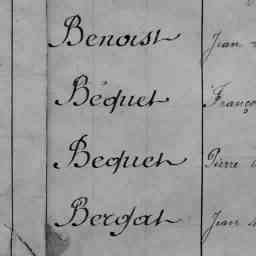 Benoist Jean
Béquet Franço
Bequet Pierre
Bergat Jean